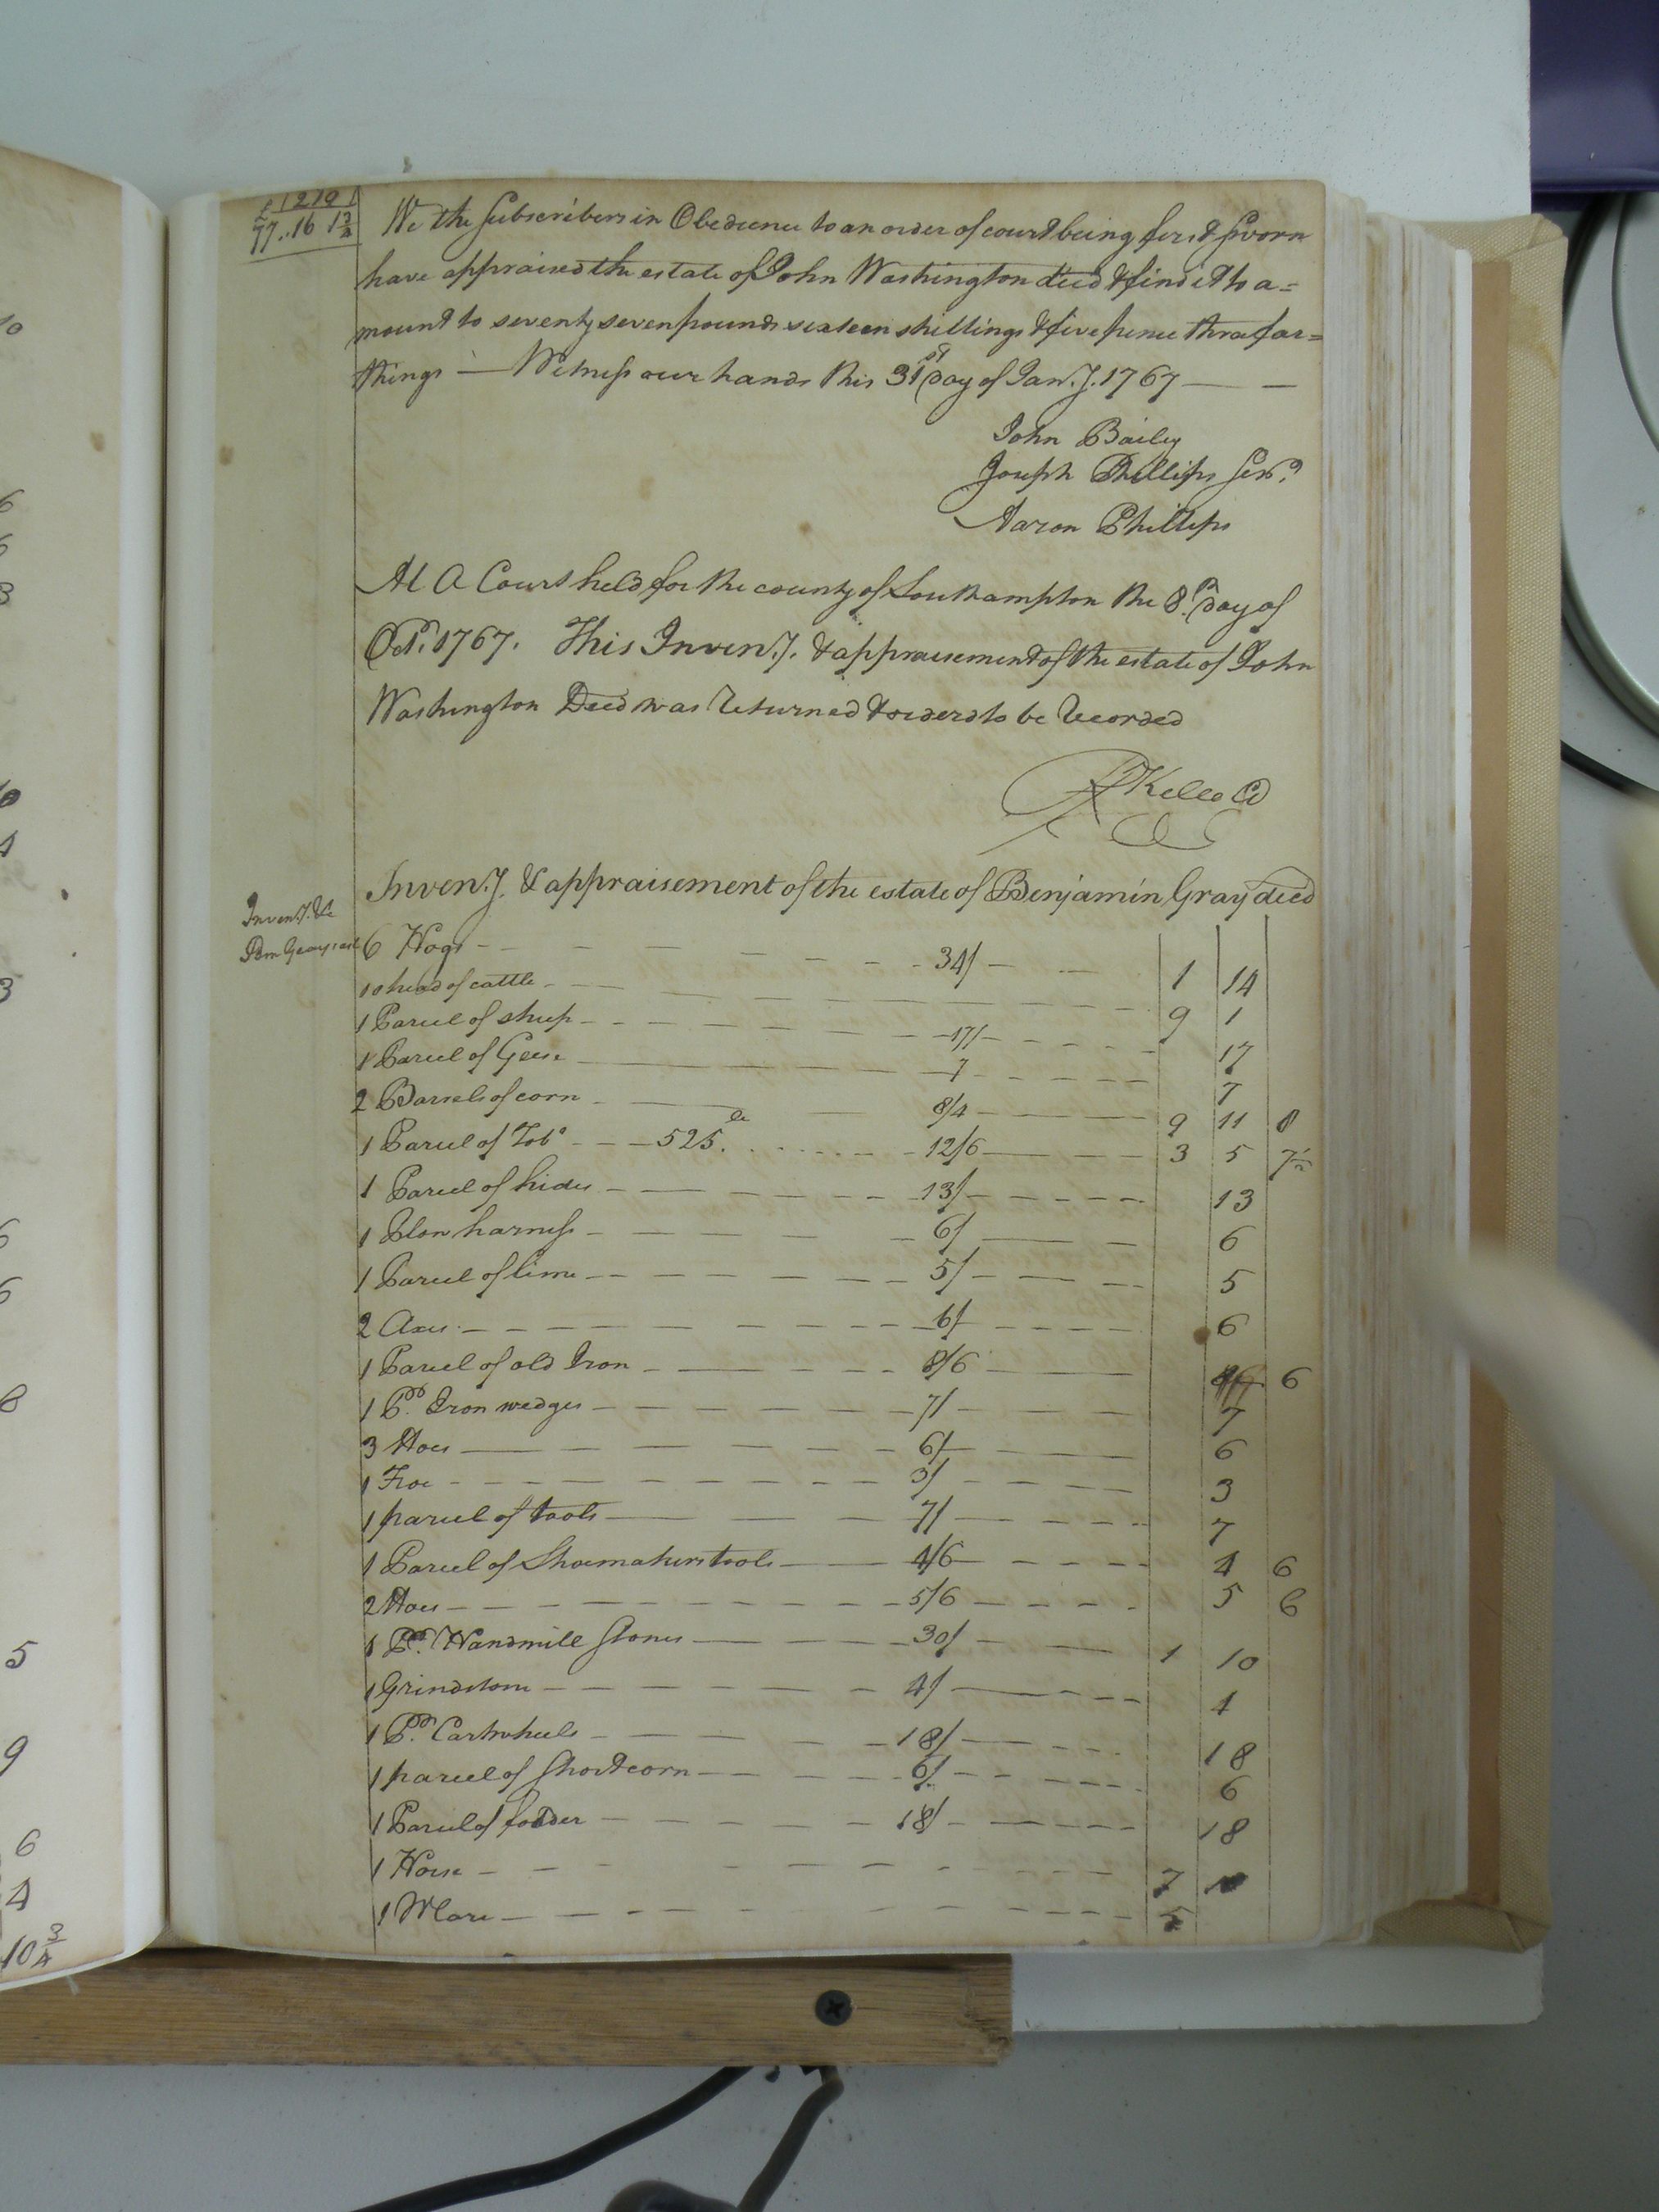 £ | 210 |
77..16 1 3/4
We the Subscribers in Obedience to an order of court being first Sworn
have appraised the estate of John Washington decd & find it to a=
mount to seventy seven pounds sixteen shillings & five pence three far=
things — Witness our hands this 31st day of Jan.y. 1767 — —
John Baily
Joseph Phillips Senr.
Aaron Phillips
At A Court held for the county of Southampton the 8th day of
Oct. 1767. This Inven.y. & appraisement of the estate of John
Washington Decd was Returned & orderd to be Recorded
R Kello Cl
Inven.y. & appraisement of the estate of Benjamin Gray decd
Inven.y. &c
Ben Grays est
6 Hogs - 34/ - 1 14
10 head of cattle - 9 1
1 Parcel of sheep - 17/ - 17
1 Parcel of Geese - 7 - 7
2 Barrels of corn - 8/4 - 9 11 8
1 Parcel of Tobo - 525 lb. 12/6 - 3 5 7 1/2
1 Parcel of hides - 13/ - 13
1 Plow harness - 6/ - 6
1 Parcel of lime - 5/ - 5
2 Axes - 6/ - 6
1 Parcel of old Iron - 8/6 - 6
1 Pr. Iron wedges - 7/ - 7
3 Hoes - 6/ - 6
1 Froe - 3/ - 3
1 parcel of tools - 7/ - 7
1 Parcel of Shoemakers tools - 4/6 - 4 6
2 Hoes - 5/6 - 5 6
1 Pr. Handmill Stones - 30/ - 1 10
1 Grindstone - 4/ - 4
1 Pr. Cartwheels - 18/ - 18
1 parcel of Short corn - 6/ - 6
1 Parcel of fodder - 18/ - 18
1 Horse - 7 10
1 Mare - 5
10
6
6
3
10
4
3
6
6
8
5
9
6
4
10 3/4